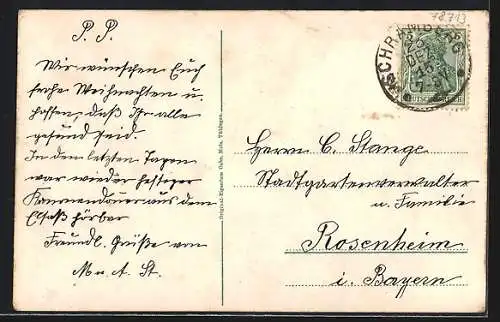 78713
P. P.
Wir wünschen Euch
frohe Weihnachten u.
hoffen, daß Ihr alle
gesund seid.
In den letzten Tagen
war wieder heftiger
Kanonendonner aus dem
Elsaß hörbar
Freundl. Grüße von
M. u. A. St.
SCHRAMBERG
DEZ
16
DEUTSCHES REICH
Original-Eigentum Gebr. Metz, Tübingen.
Herrn C. Stange
Stadtgartenverwalter
u. Familie
Rosenheim
i. Bayern